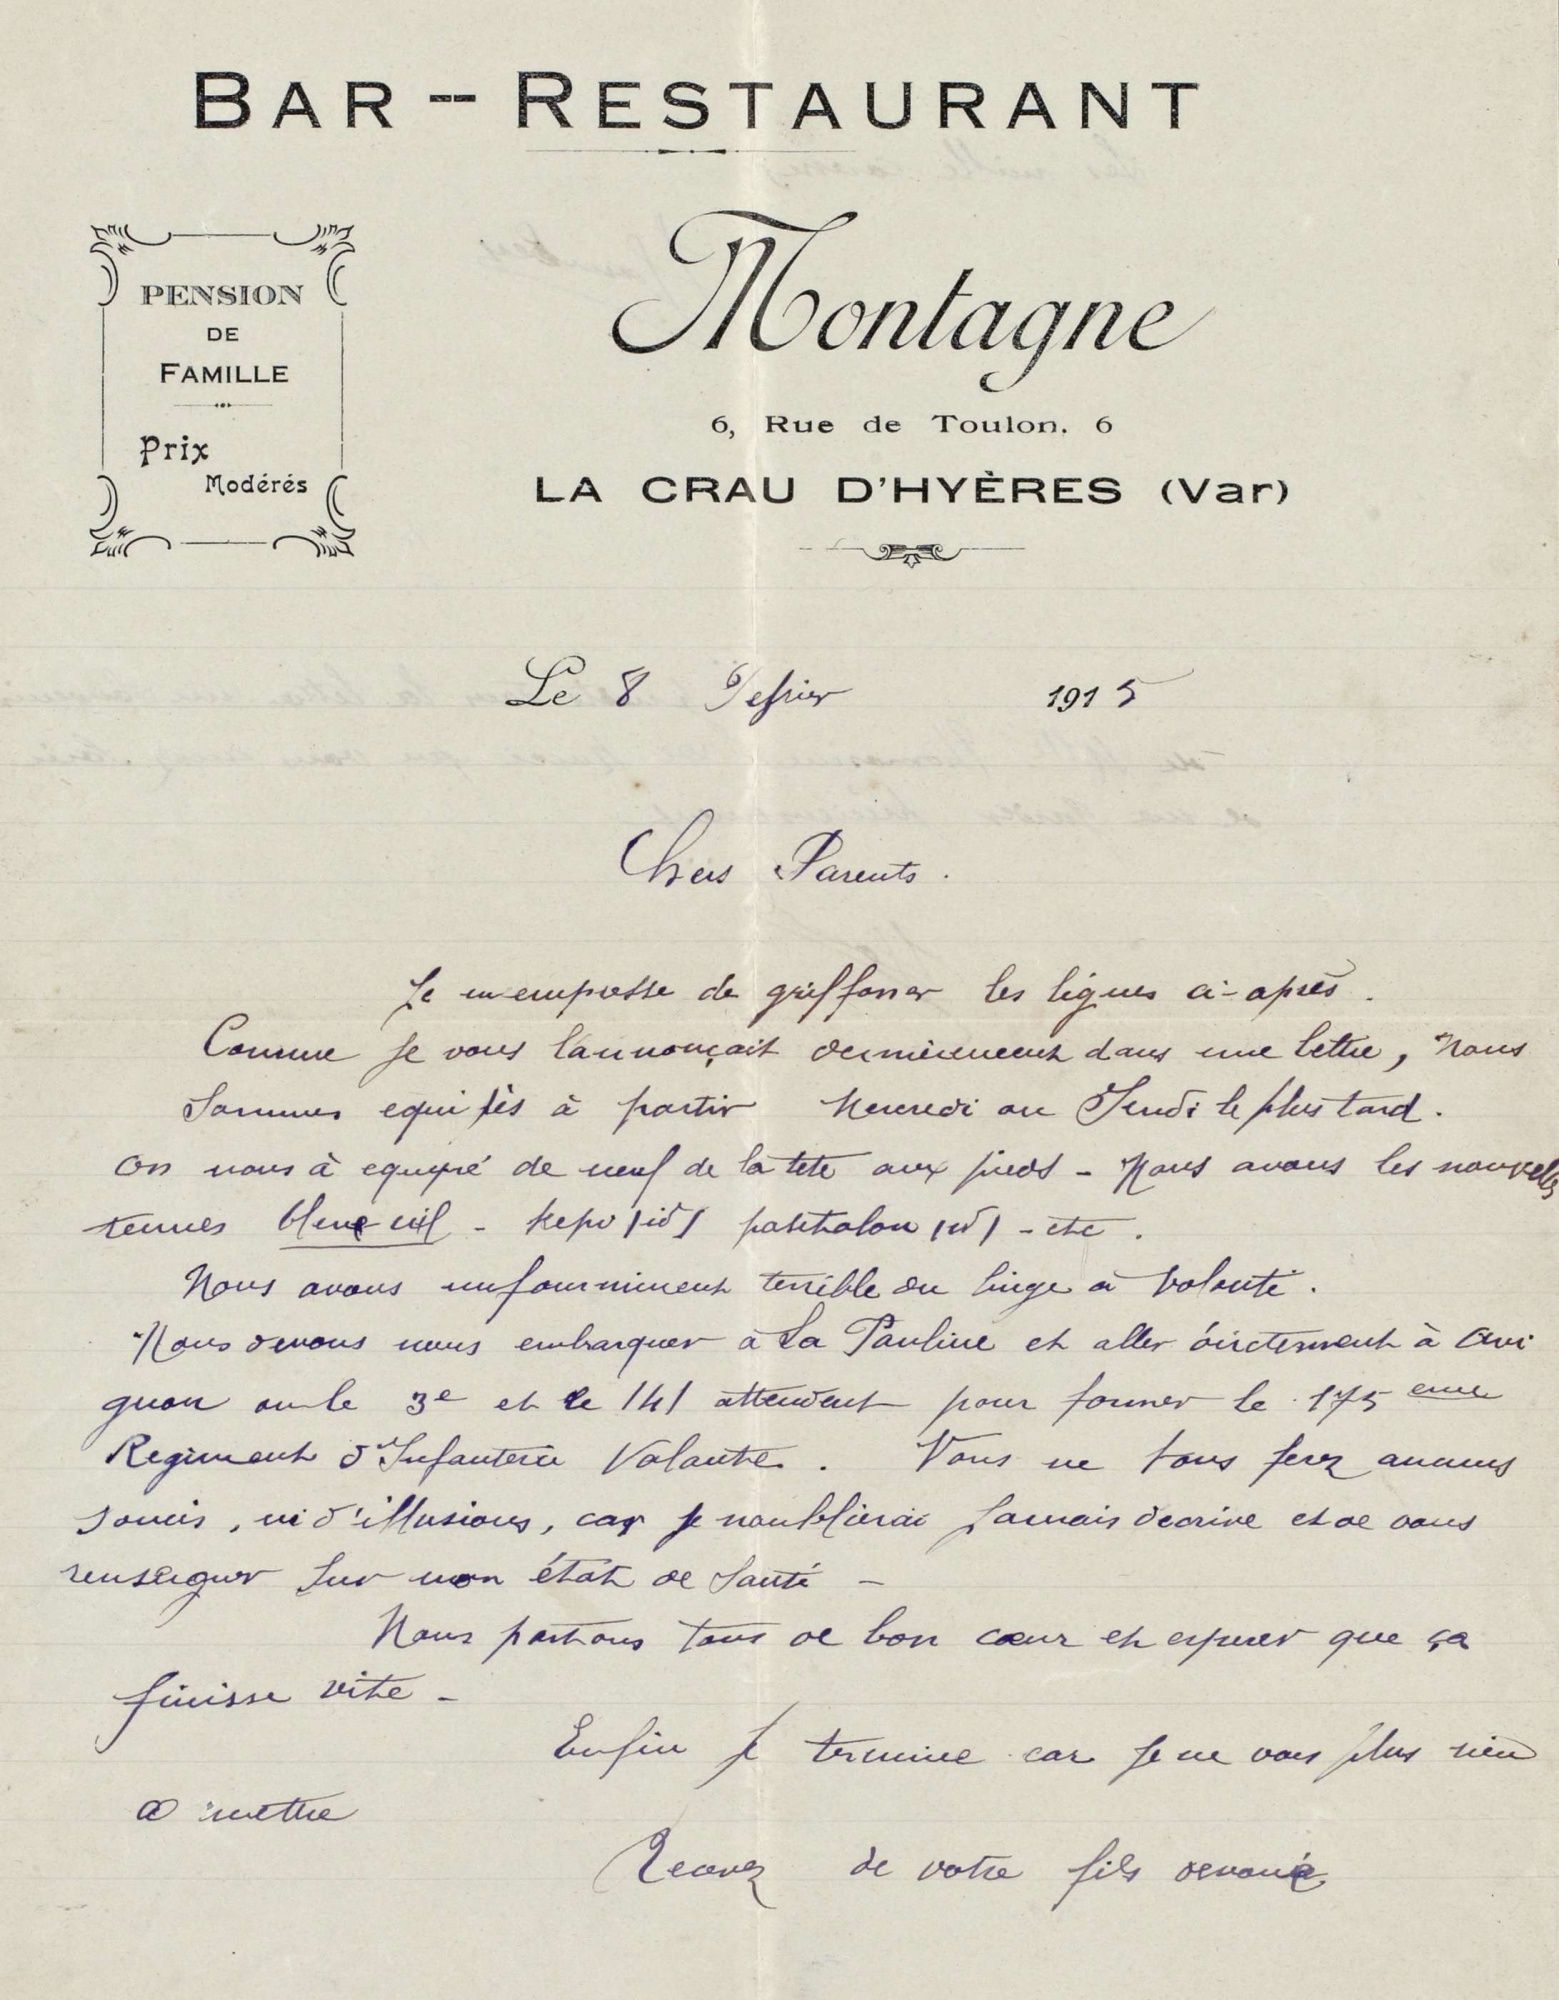 BAR -- RESTAURANT
PENSION
DE
FAMILLE
Prix
Modérés
Montagne
6, Rue de Toulon. 6
LA CRAU D'HYÈRES (Var)
Le 8 Fefrier 1915
Chers Parents.
Je m'empresse de griffoner les lignes ci-après.
Comme je vous l'annonçait dernièrement dans une lettre, Nous
sommes equipès à partir Mercredi ou Jeudi le plus tard.
On nous à equipé de neuf de la tete aux pieds - Nous avons les nouvelles
tenues bleue - kepi pantalon - etc.
Nous avons un fourniment terrible du linge a Volonté.
Nous devons nous embarquer à La Pauline et aller dirctement à Avi
gnon ou le 3e et le 141 attendent pour former le 175 eme
Regiment d'Infanterie Volante. Vous ne vous ferez aucuns
soucis, ni d'illusions, car je n'oublierai jamais d'ecrire et de vous
renseigner sur mon état de santé -
Nous partons tous de bon cœur et esperer que ça
finisse vite -
Enfin je termine car je ne vois plus rien
a mettre
Recevez de votre fils devoué